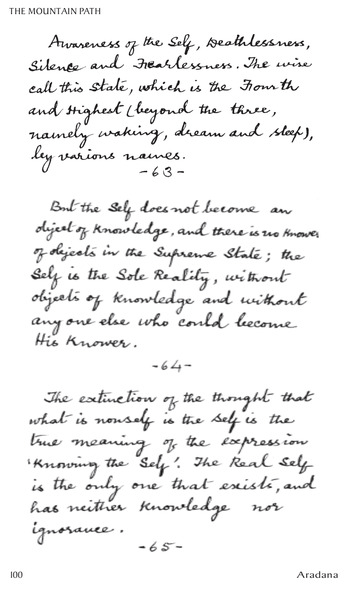 THE MOUNTAIN PATH
Awareness of the Self, Deathlessness,
Silence and Fearlessness. The wise
call this State, which is the Fourth
and Highest (beyond the three,
namely waking, dream and sleep),
by various names.
-63-
But the Self does not become an
object of knowledge, and there is no knower
of objects in the Supreme State; the
Self is the Sole Reality, without
objects of knowledge and without
any one else who could become
His Knower.
-64-
The extinction of the thought that
what is nonself is the Self is the
true meaning of the expression
'Knowing the Self'. The Real Self
is the only one that exists, and
has neither knowledge nor
ignorance.
-65-
100 Aradana